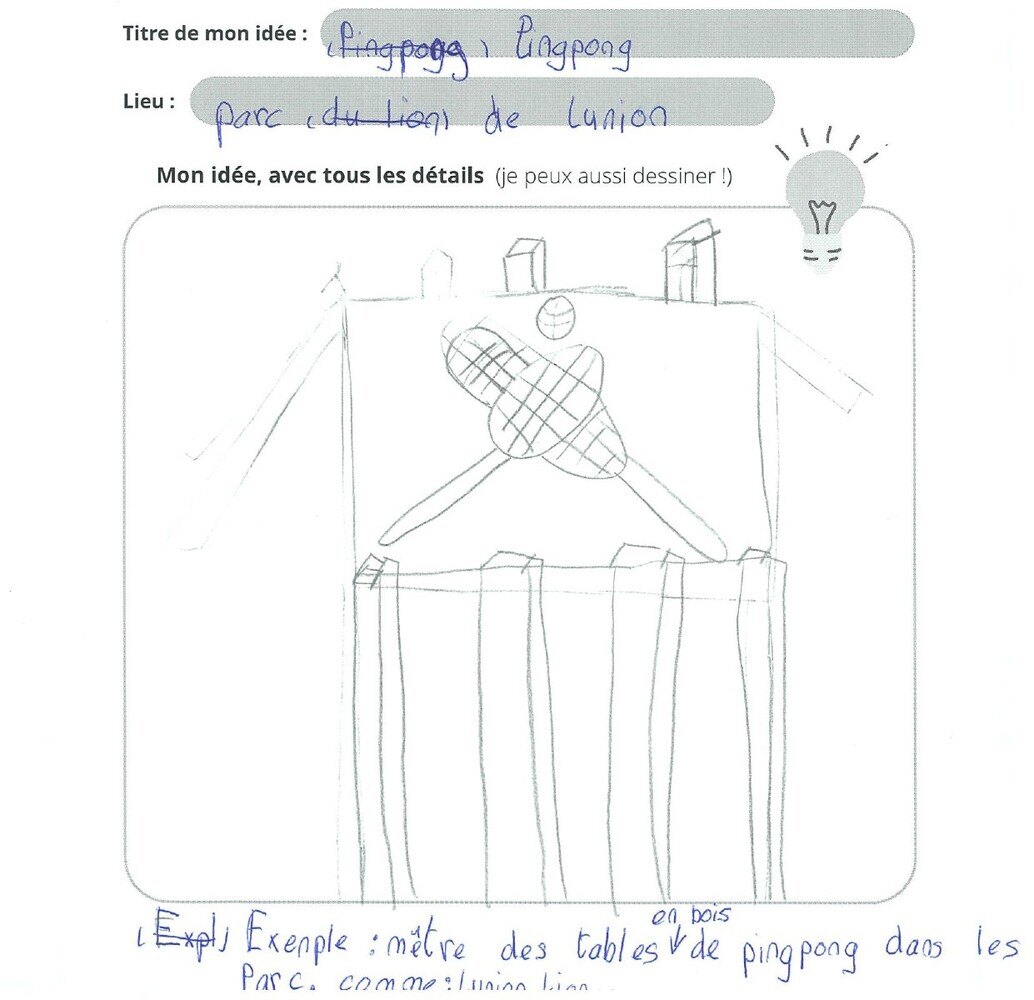 Titre de mon idée : (Pingpong) Pingpong
Lieu : parc (du lion) de lunion
Mon idée, avec tous les détails (je peux aussi dessiner !)
en bois
(Expl) Exenple : mêtre des tables de pingpong dans les
Parc, comme : lunion lion